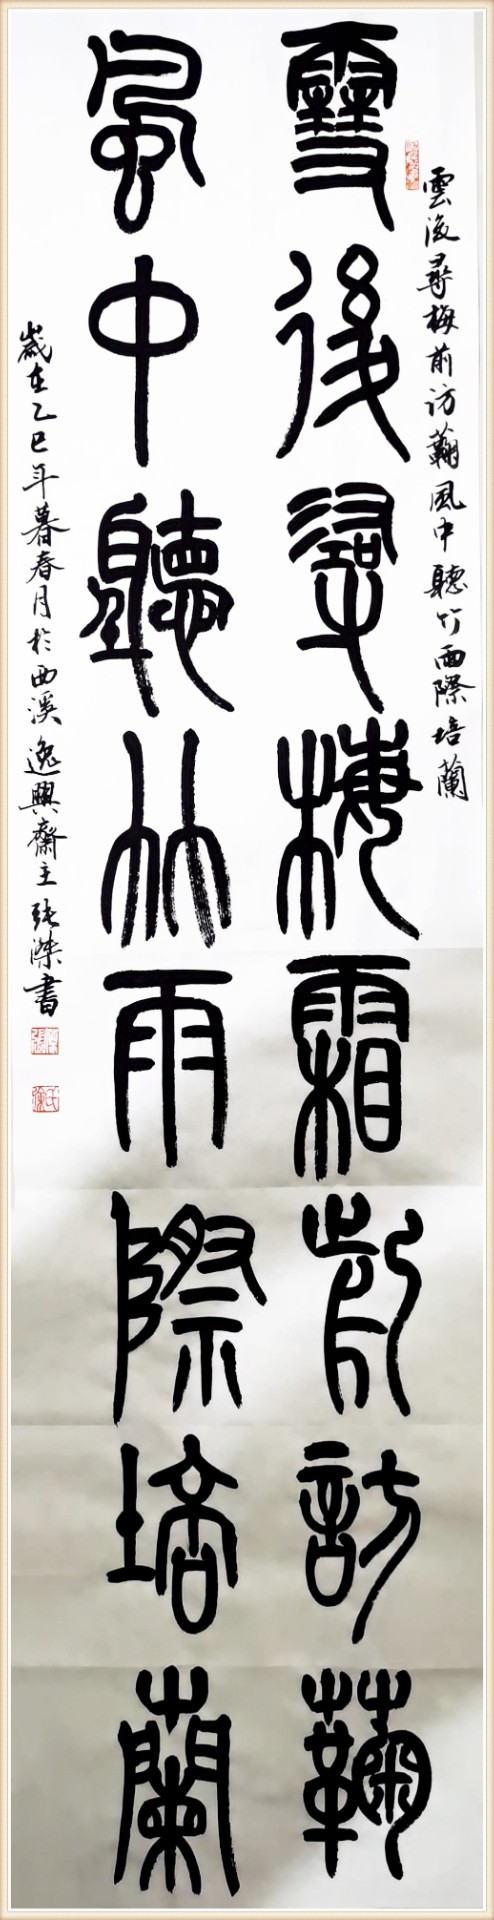 雲後尋梅前访蘜風中聽竹雨際培蘭
雪後尋梅霜前訪蘜
風中聽竹雨際培蘭
歲在乙巳年暮春月於西溪逸興齋主張滐書